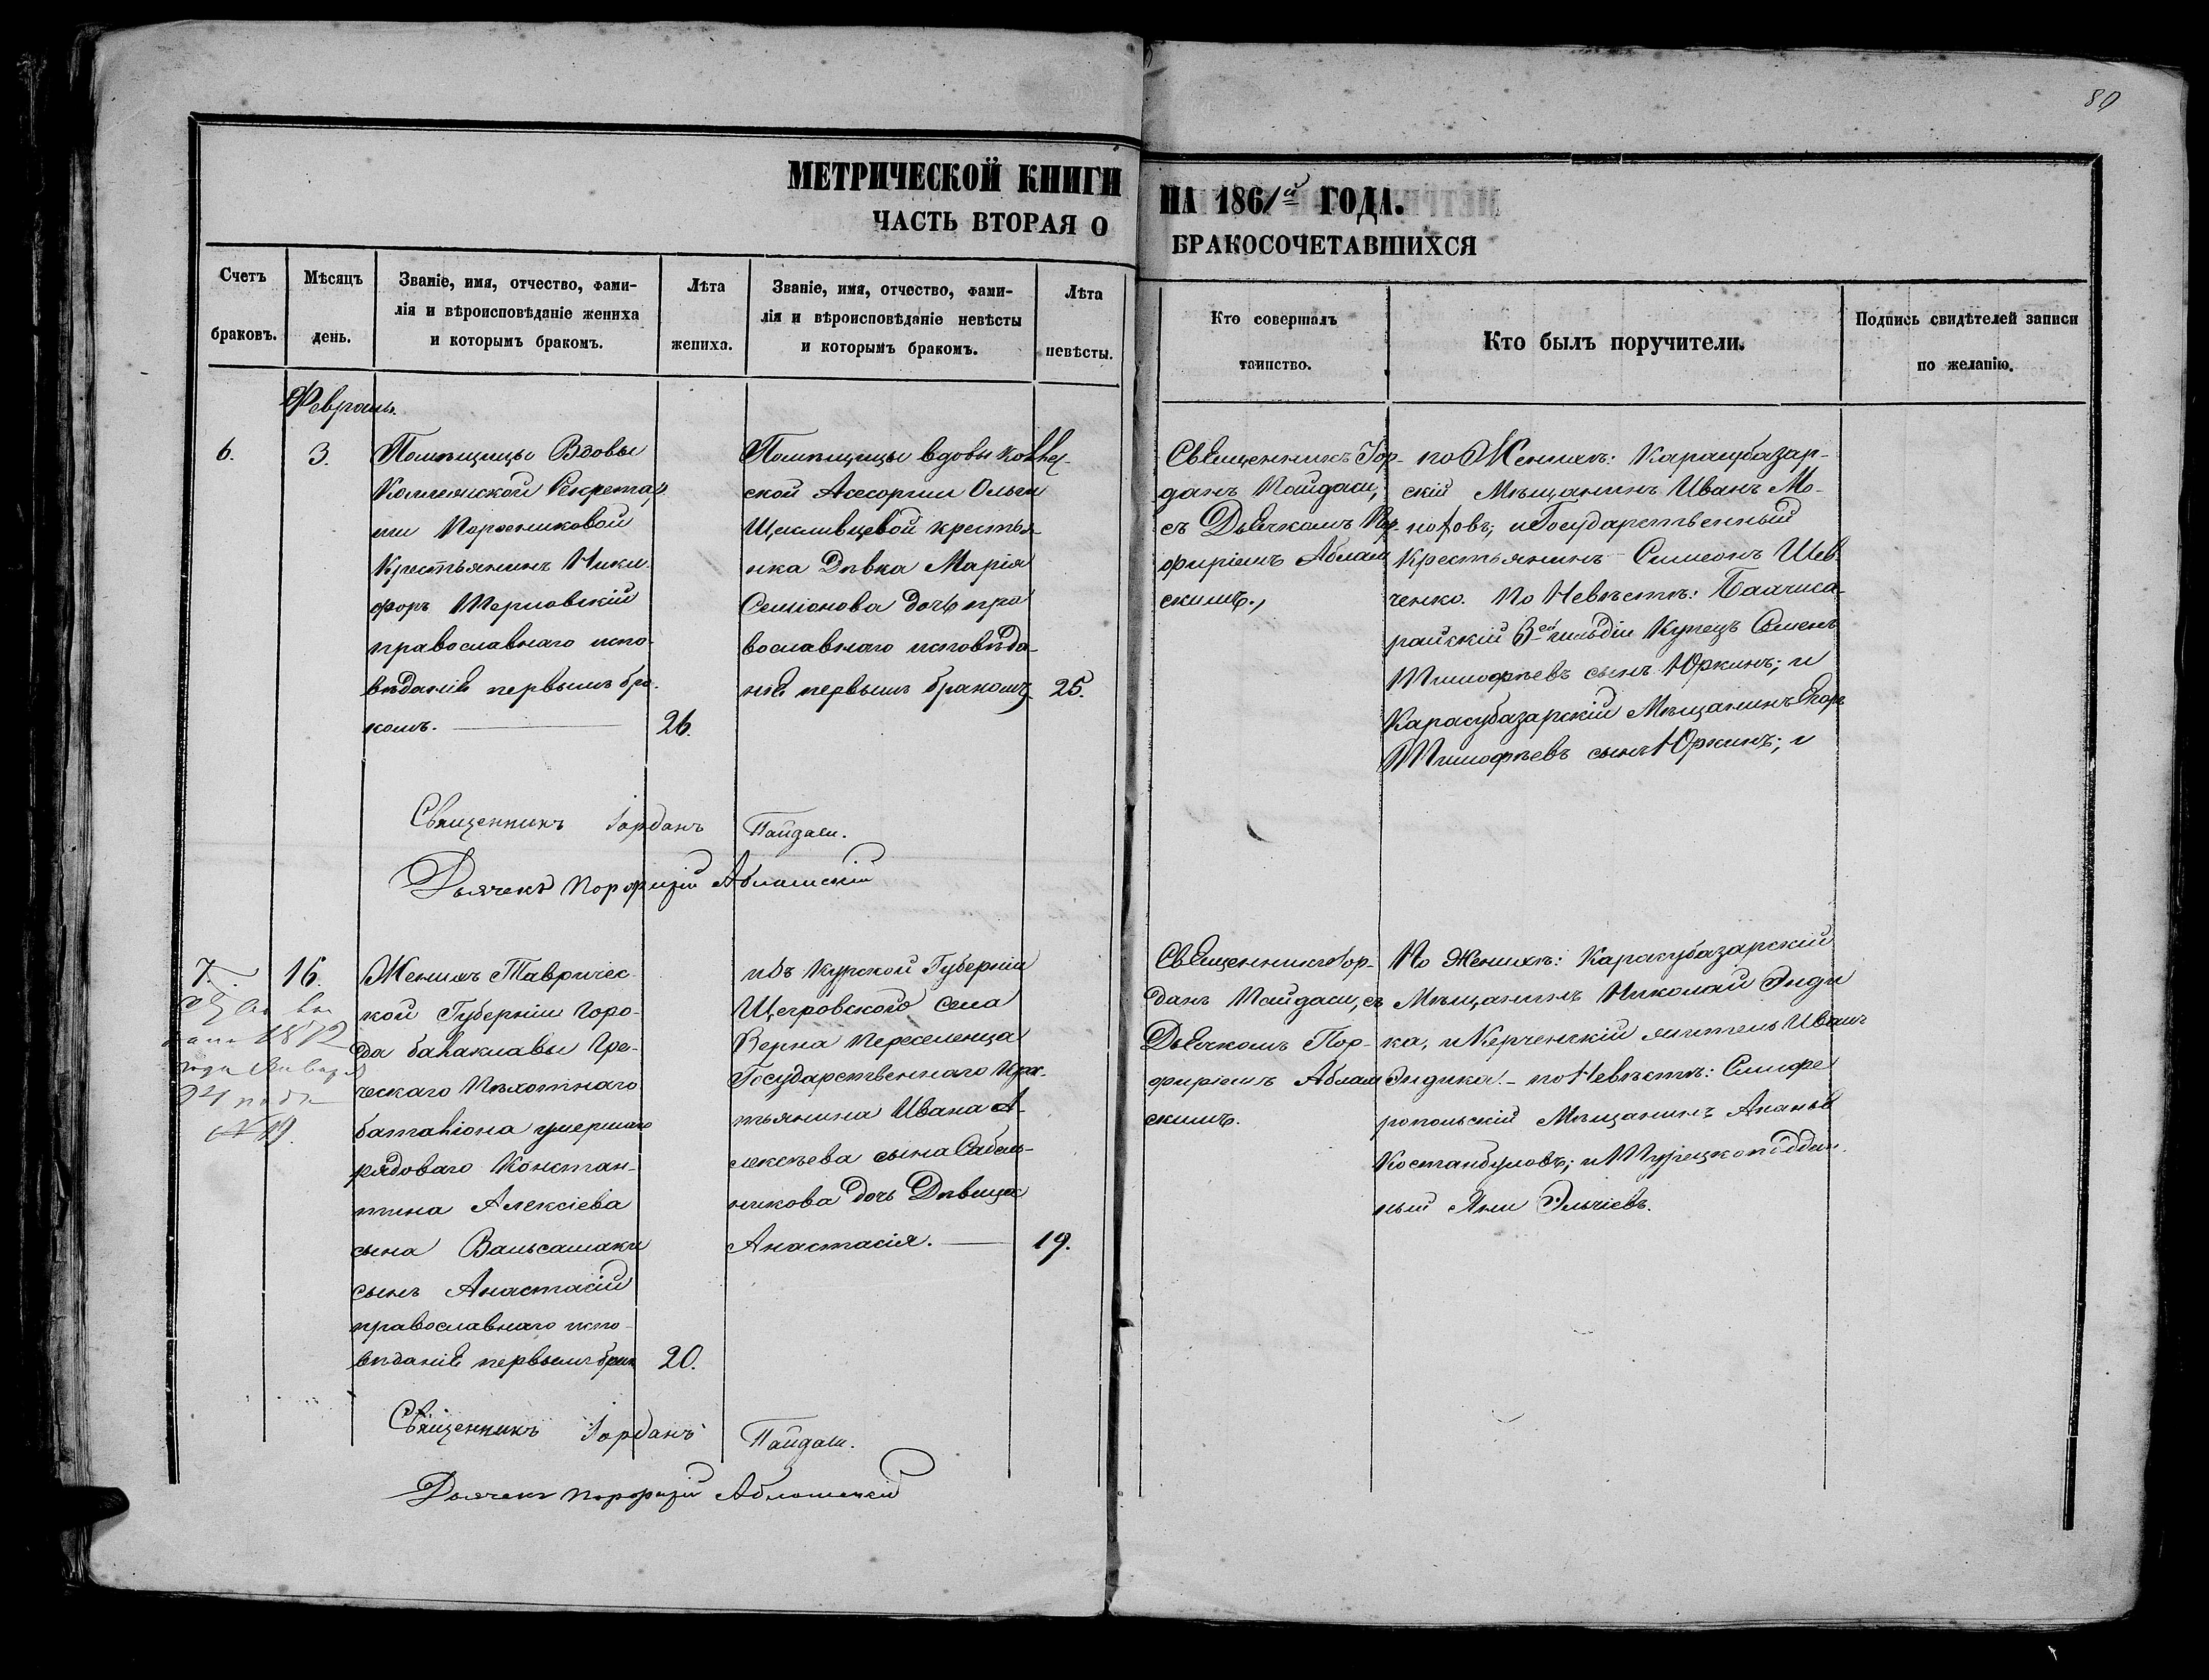 80
МЕТРИЧЕСКОЙ КНИГИ НА 1861й ГОДА.
ЧАСТЬ ВТОРАЯ О БРАКОСОЧЕТАВШИХСЯ
Счетъ браковъ.
Мѣсяцъ день.
Званіе, имя, отчество, фами-
лія и вѣроисповѣданіе жениха
и которымъ бракомъ.
Лѣта жениха.
Званіе, имя, отчество, фами-
лія и вѣроисповѣданіе невѣсты
и которымъ бракомъ.
Лѣта невѣсты.
Кто совершалъ таинство.
Кто былъ поручители.
Подпись свидѣтелей записи
по желанію.
Февраль.
6.
3.
Помѣщицы Вдовы
Коллежской Секрета-
ши
Крестьянинъ Ники-
форъ Терновскій
православнаго испо-
вѣданія первымъ бра-
комъ.
26.
Помѣщицы вдовы Коллеж-
ской Асесорши Ольги
крестья-
нка Дѣвка Марія
Семіонова дочь пра
вославнаго исповѣда-
нія первымъ бракомъ
25.
Священникъ Іор-
данъ Пайдаси,
съ Дьячкомъ Пор-
фиріемъ Аблам
скимъ.,
по Женихѣ: Карасубазар-
скій Мѣщанинъ Иванъ Мо-
Государственный
Крестьянинъ Симеонъ Шев-
ченко. По Невѣстѣ: Бахчиса-
райскій 3ей гильдіи Купецъ Семенъ
Тимофѣевъ сынъ Юркинъ; и
Карасубазарскій Мѣщанинъ Егоръ
Тимофѣевъ сынъ Юркинъ; и
Священникъ Іорданъ Пайдаси.
Дьячекъ Порфирій Абламскій
7.
1872
года Января
24
№ 19.
16.
Женихъ Тавричес-
кой Губерніи Горо-
да балаклавы Гре-
ческаго Пѣхотнаго
баталіона умершаго
рядоваго Констан-
тина Алексіева
сына Вальсамаки
сынъ Анастасій
православнаго испо-
вѣданія первымъ брак
20.
изъ Курской Губерніи
Щегровского села
Верха Переселенца
Государственнаго Крес-
тьянина Ивана А-
лексѣева сына Сабель-
никова дочь Дѣвица
Анастасія.
19.
Священникъ Іор-
данъ Пайдаси, съ
Дьячкомъ Пор-
фиріемъ Аблам
скимъ.
По Женихѣ: Карасубазарскій
Мѣщанинъ Николай Энди
ка, и Керченскій житель Иванъ
Эндика. - по Невѣстѣ: Симфе
ропольскій Мѣщанинъ Ананій
Костанбуловъ; и Турецкоподдан-
ный Яни Эльчіевъ.
Священникъ Іорданъ Пайдаси.
Дьячекъ Порфирій Абламскій